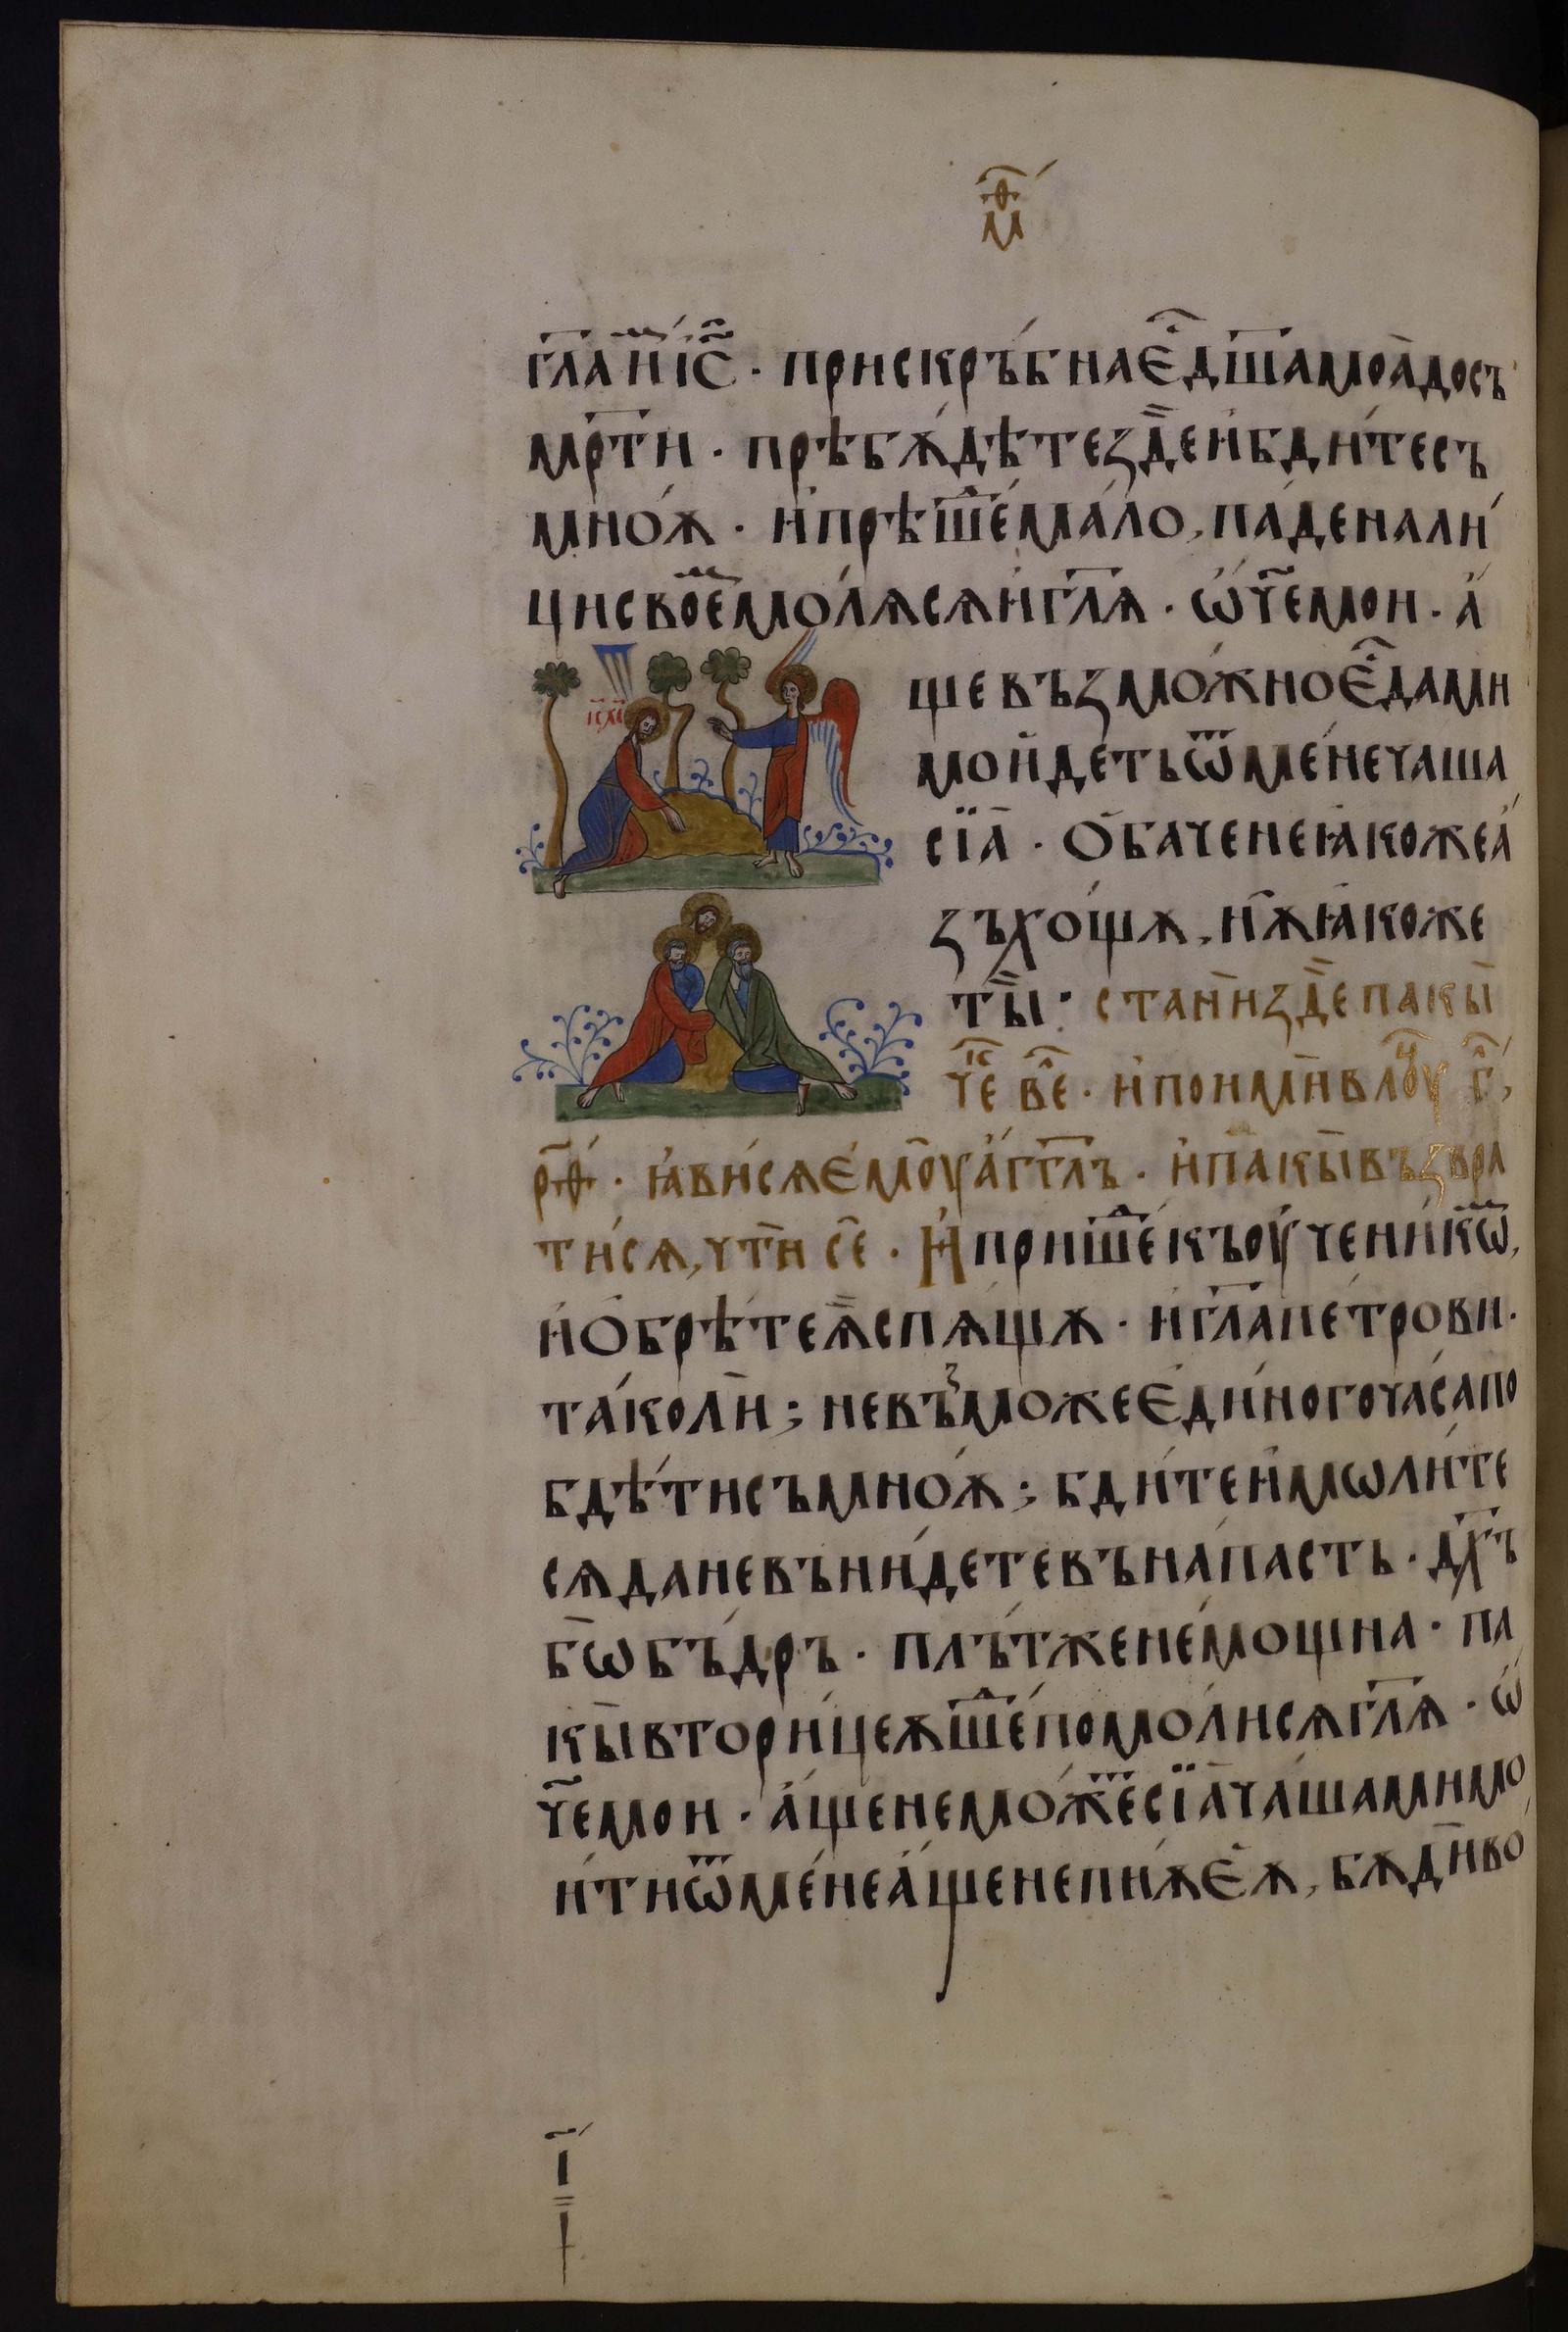 м҃ѳ
гл҃а и҆м і҆с҃ · прискръ́бна є҆с дш҃а моа̀ досъ
мр҃ти · прѣбѫ́дѣте зⷣе и҆ бди́те съ
мно́ѫ · и҆ прѣше́д ма́ло, па́де на ли́
ци свое҆м молѧ сѧ и҆ гл҃ѧ · ѡ҆ч҃е мои · а҆
і҆с х҃с
ще въꙁмо́жно є҆с да ми
мои́деть ѿ ме́не чаша
сїа̀ · О҆баче не ꙗ҆коже а҆
ꙁъ хо́щѫ, нѫ̀ ꙗ҆коже
ты̀ · стани̏ ꙁⷣе пакы̀
чис҃е в҃ле · и҆ пои̏ми̏ в лоук г҃,
р҃ѳ · ꙗ҆ви́сѧ є҆моу̀ а҆гг҃лъ · и҆ пакы̀ въꙁвра
ти́сѧ, чти̏ се҃ · И҆ прише́д къ оу҆чени́кѡм,
и҆ О҆брѣ́те ѧ҆̀ спѧ́щѫ · и҆ гл҃а пе́трови ·
та́ко ли̏; не въꙁможе є҆ди́ного часа́ по
бдѣ́ти съ мно́ѫ; бди́те и҆ мѡли́те
сѧ да не въни́дете въ на́пасть · дх҃ъ
бѡ̀ бъ́дръ · плъ́т же не́мощна · па
кы̀ втори́цеѫ ше́д помо́ли сѧ гл҃ѧ · ѡ҆
ч҃е мои · а҆ще не мо́жет сїа̀ ча́ша мимо
и́ти ѿ ме́не а҆ще не пи́ѫ є҆ѫ, бѫди̏ во
і҃